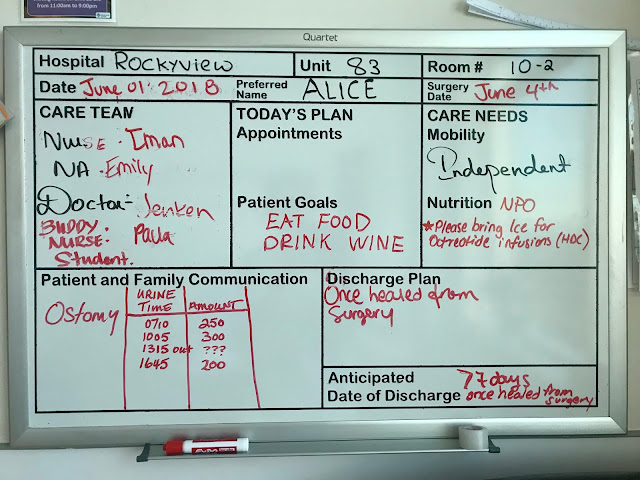 from 11:00am to 9:00pm
Quartet
Hospital ROCKYVIEW Unit 83 Room # 10-2
Date June 01 2018 Preferred Name ALICE Surgery Date June 4th
CARE TEAM
Nurse - Iman
NA - Emily
Doctor - Jenken
BUDDY NURSE - Paula
Student.
TODAY'S PLAN
Appointments
Patient Goals
EAT FOOD
DRINK WINE
CARE NEEDS
Mobility
Independent
Nutrition NPO
*Please bring Ice for
Octreotide infusions (HDC)
Patient and Family Communication
Ostomy
URINE
TIME AMOUNT
0710 250
1005 300
1315 out ???
1645 200
Discharge Plan
Once healed from
Surgery
Anticipated
Date of Discharge
?7 days
once healed from
surgery
EXPO